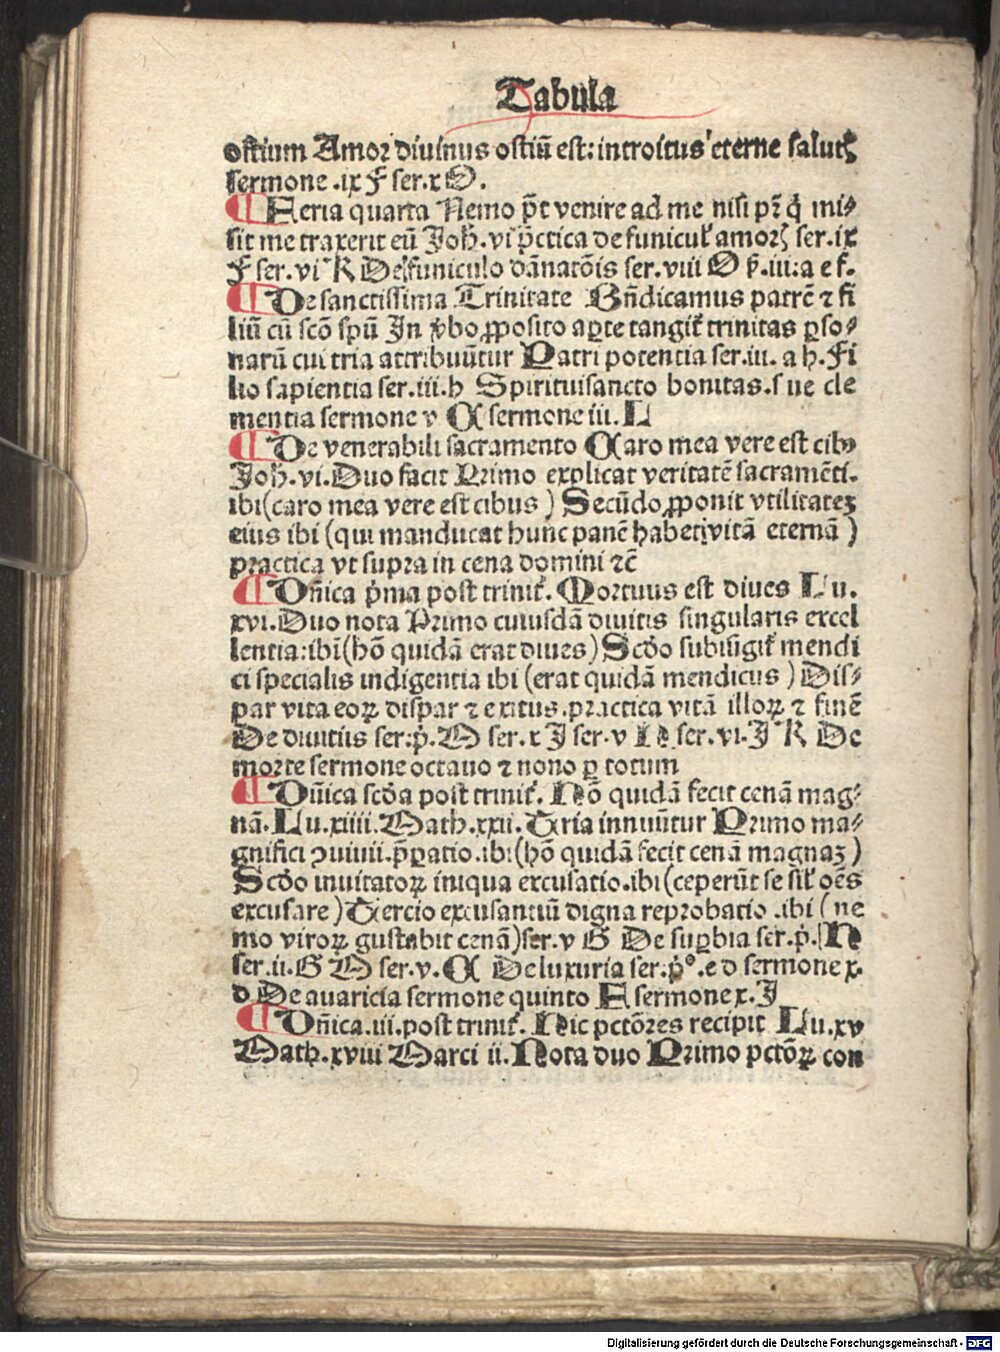 Tabula
ostium Amor diuinus ostiū est: introitus eterne salutꝭ
sermone .ix F ser.x O.
¶ Feria quarta Nemo pōt venire ad me nisi pr̄ q̄ mi-
sit me traxerit eū Joh̄.vi p̄ctica de funicul' amorꝭ ser.ix
F ser.vi K De funiculo dānatōis ser.viii O p̄.iii:a e f.
¶ De sanctissima Trinitate Bn̄dicamus patrē ⁊ fi
liū cū scō spū In ꝟbo ꝓposito aꝑte tangit' trinitas ꝑso-
narū cui tria attribuūtur Patri potentia ser.iii. a h. Fi
lio sapientia ser.iii.h Spirituisancto bonitas.s ue cle
mentia sermone v C sermone iii. L
¶ De venerabili sacramento Caro mea vere est cibꝰ
Joh̄.vi. Duo facit Primo explicat veritatē sacramēti.
ibi (caro mea vere est cibus) Secūdo ꝓponit vtilitateꝫ
eius ibi (qui manducat hunc panē habet vitā eternā)
practica vt supra in cena domini ⁊c̄
¶ Dn̄ica p̄ma post trinit'. Mortuus est diues Lu.
xvi. Duo nota Primo cuiusdā diuitis singularis excel
lentia: ibi (hō quidā erat diues) Scdo subiūgit' mendi
ci specialis indigentia ibi (erat quidā mendicus) Dis-
par vita eoꝝ dispar ⁊ exitus. practica vitā illoꝝ ⁊ finē
De diuitiis ser:p̄. M ser.x I ser.v N ser.vi. I K De
morte sermone octauo ⁊ nono ꝑ totum
¶ Dn̄ica scda post trinit'. Hō quidā fecit cenā mag-
nā. Lu.xiiii. Math.xxii. Tria innuūtur Primo ma-
gnifici ꝯuiuii. p̄ꝑatio. ibi (hō quidā fecit cenā magnaꝫ)
Scdo inuitatoꝝ iniqua excusatio. ibi (ceperūt se sil' oēs
excusare) Tercio excusantiū digna reprobatio .ibi (ne
mo viroꝝ gustabit cenā) ser.v G De suꝑbia ser.p̄. N
ser.ii. G M ser.v. C De luxuria ser.p̄º.e d sermone x.
d De auaricia sermone quinto E sermone x. I
¶ Dn̄ica.iii.post trinit'. Hic pctōres recipit Lu.xv
Math.xviii Marci ii. Nota duo Primo pctōꝝ con
Digitalisierung gefördert durch die Deutsche Forschungsgemeinschaft - DFG